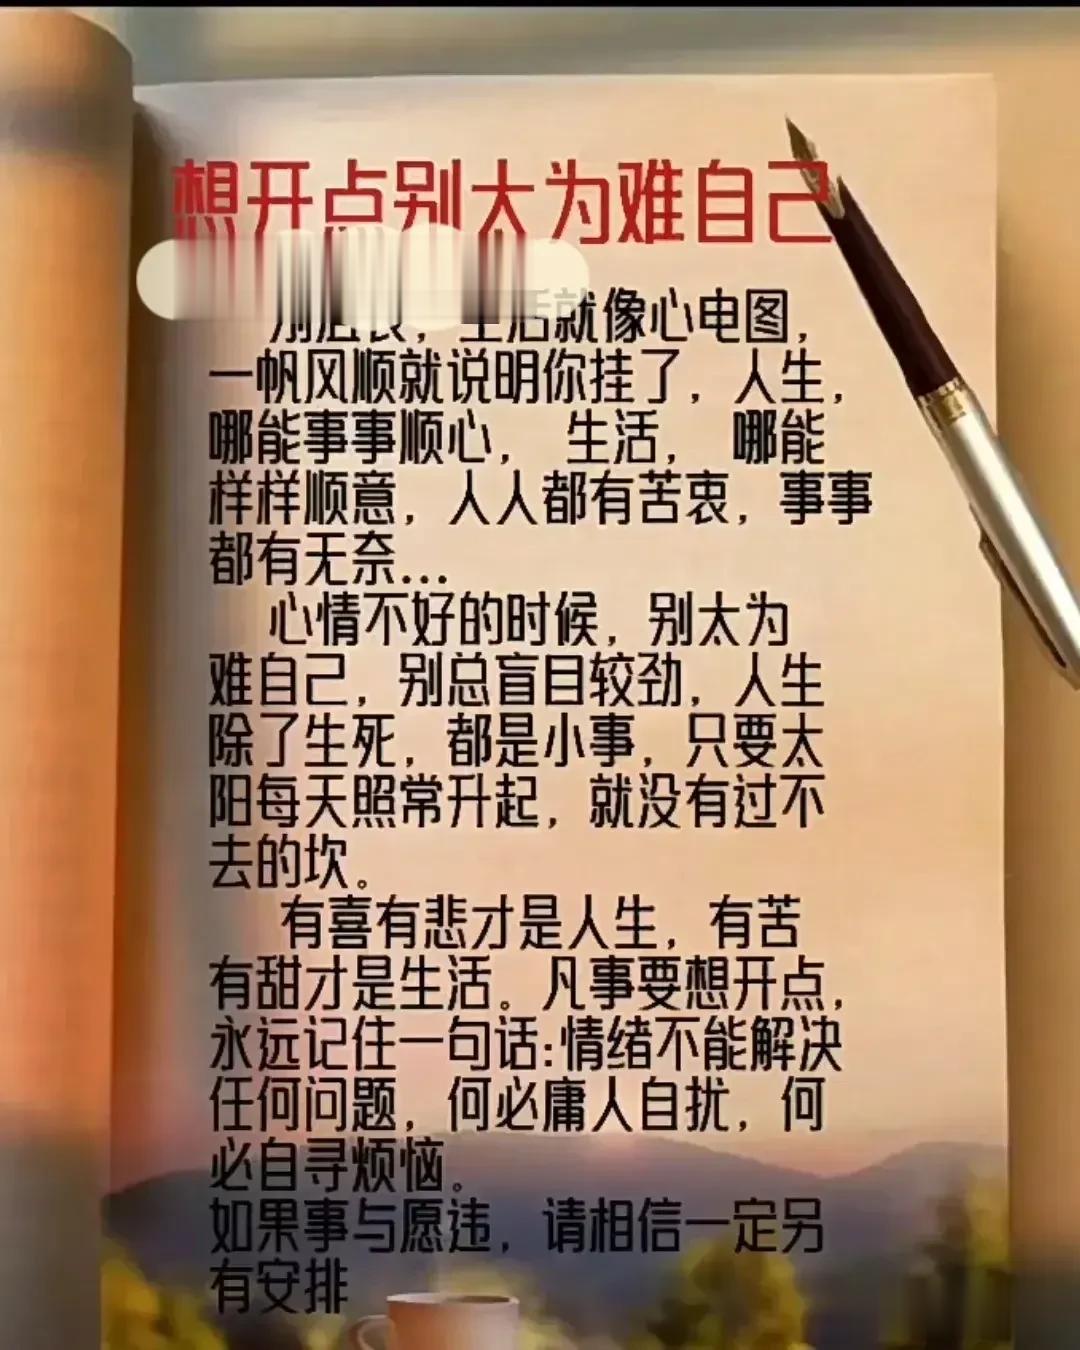 想开点别太为难自己
生活就像心电图，
一帆风顺就说明你挂了，人生，
哪能事事顺心， 生活， 哪能
样样顺意，人人都有苦衷，事事
都有无奈...
心情不好的时候，别太为
难自己，别总盲目较劲，人生
除了生死，都是小事，只要太
阳每天照常升起，就没有过不
去的坎。
有喜有悲才是人生，有苦
有甜才是生活。凡事要想开点，
永远记住一句话:情绪不能解决
任何问题，何必庸人自扰，何
必自寻烦恼。
如果事与愿违，请相信一定另
有安排